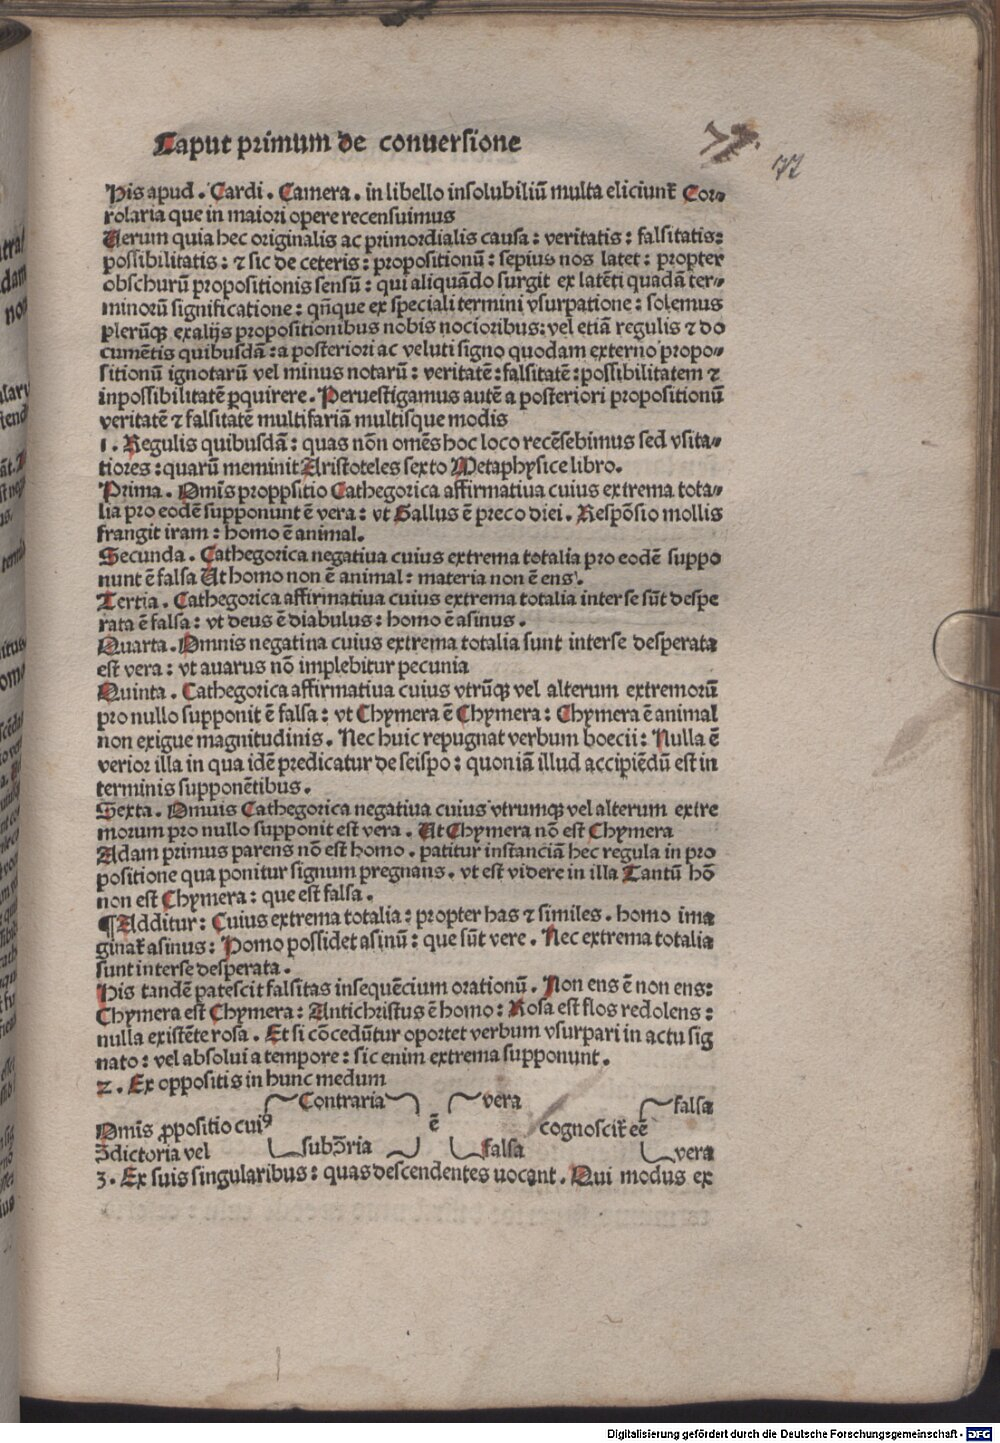 Caput primum de conuersione
72
His apud . Cardi . Camera . in libello insolubiliū multa eliciunt᷑ Cor⸗
rolaria que in maiori opere recensuimus
Uerum quia hec originalis ac primordialis causa : veritatis : falsitatis:
possibilitatis : ⁊ sic de ceteris : propositionū : sepius nos latet : propter
obschurū propositionis sensū : qui aliquādo surgit ex latēti quadā ter⸗
minorū significatione : qn̄que ex speciali termini vsurpatione : solemus
plerūqꝫ exalijs propositionibus nobis nocioribus: vel etiā regulis ⁊ do
cumētis quibusdā : a posteriori ac veluti signo quodam externo propo⸗
sitionū ignotarū vel minus notarū : veritatē : falsitatē : possibilitatem ⁊
inpossibilitatē ꝑquirere . Peruestigamus autē a posteriori propositionū
veritatē ⁊ falsitatē multifariā multisque modis
1 . Regulis quibusdā : quas nōn omēs hoc loco recēsebimus sed vsita⸗
tiores : quarū meminit Aristoteles sexto Metaphysice libro .
Prima . Omīs proppsitio Cathegorica affirmatiua cuius extrema tota⸗
lia pro eodē supponunt ē vera : vt Gallus ē preco diei . Respōsio mollis
frangit iram : homo ē animal .
Secunda . Cathegorica negatiua cuius extrema totalia pro eodē suppo
nunt ē falsa Ut homo non ē animal : materia non ē ens .
Tertia . Cathegorica affirmatiua cuius extrema totalia inter se sūt despe
rata ē falsa : vt deus ē diabulus : homo ē asinus .
Quarta . Omnis negatina cuius extrema totalia sunt interse desperata
est vera : vt auarus nō implebitur pecunia
Quinta . Cathegorica affirmatiua cuius vtrūqꝫ vel alterum extremorū
pro nullo supponit ē falsa : vt Chymera ē Chymera : Chymera ē animal
non exigue magnitudinis . Nec huic repugnat verbum boecii : Nulla ē
verior illa in qua idē predicatur de seispo : quoniā illud accipiēdū est in
terminis supponētibus .
Sexta . Omuis Cathegorica negatiua cuius vtrumqꝫ vel alterum extre
morum pro nullo supponit est vera . Ut Chymera nō est Chymera
Adam primus parens nō est homo . patitur instanciā hec regula in pro
positione qua ponitur signum pregnans . vt est videre in illa Tantū hō
non est Chymera : que est falsa .
¶ Additur : Cuius extrema totalia : propter has ⁊ similes . homo ima
ginat᷑ asinus : Homo possidet asinū : que sūt vere . Nec extrema totalia
sunt interse desperata .
His tandē patescit falsitas insequēcium orationū . Non ens ē non ens:
Chymera est Chymera : Antichristus ē homo : Rosa est flos redolens :
nulla existēte rosa . Et si cōcedūtur oportet verbum vsurpari in actu sig
nato : vel absolui a tempore : sic enim extrema supponunt .
2 . Ex oppositis in hunc medum
Contraria vera falsa
Omīs ꝓpositio cuiꝰ ē cognoscit᷑ eē
ↄ̄dictoria vel subↄ̄ria falsa vera
3 . Ex suis singularibus : quas descendentes uocant . Qui modus ex
Digitalisierung gefördert durch die Deutsche Forschungsgemeinschaft - DFG